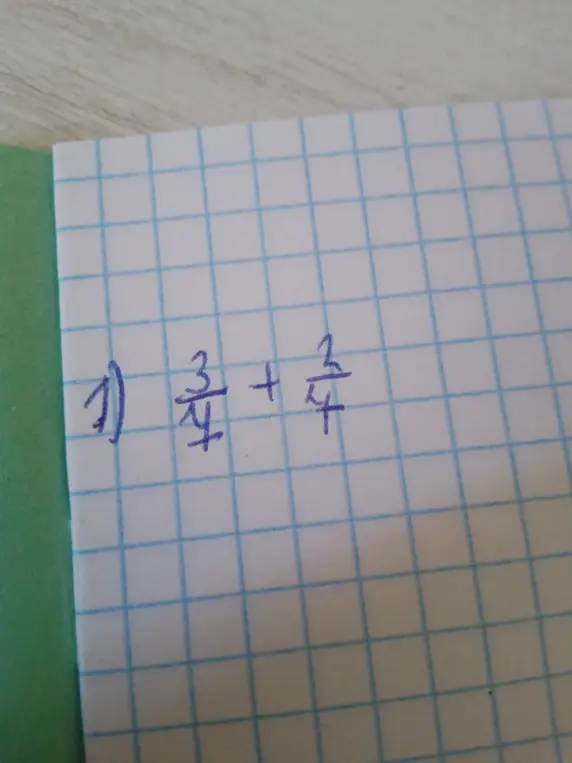 1) 3/4 + 3/4